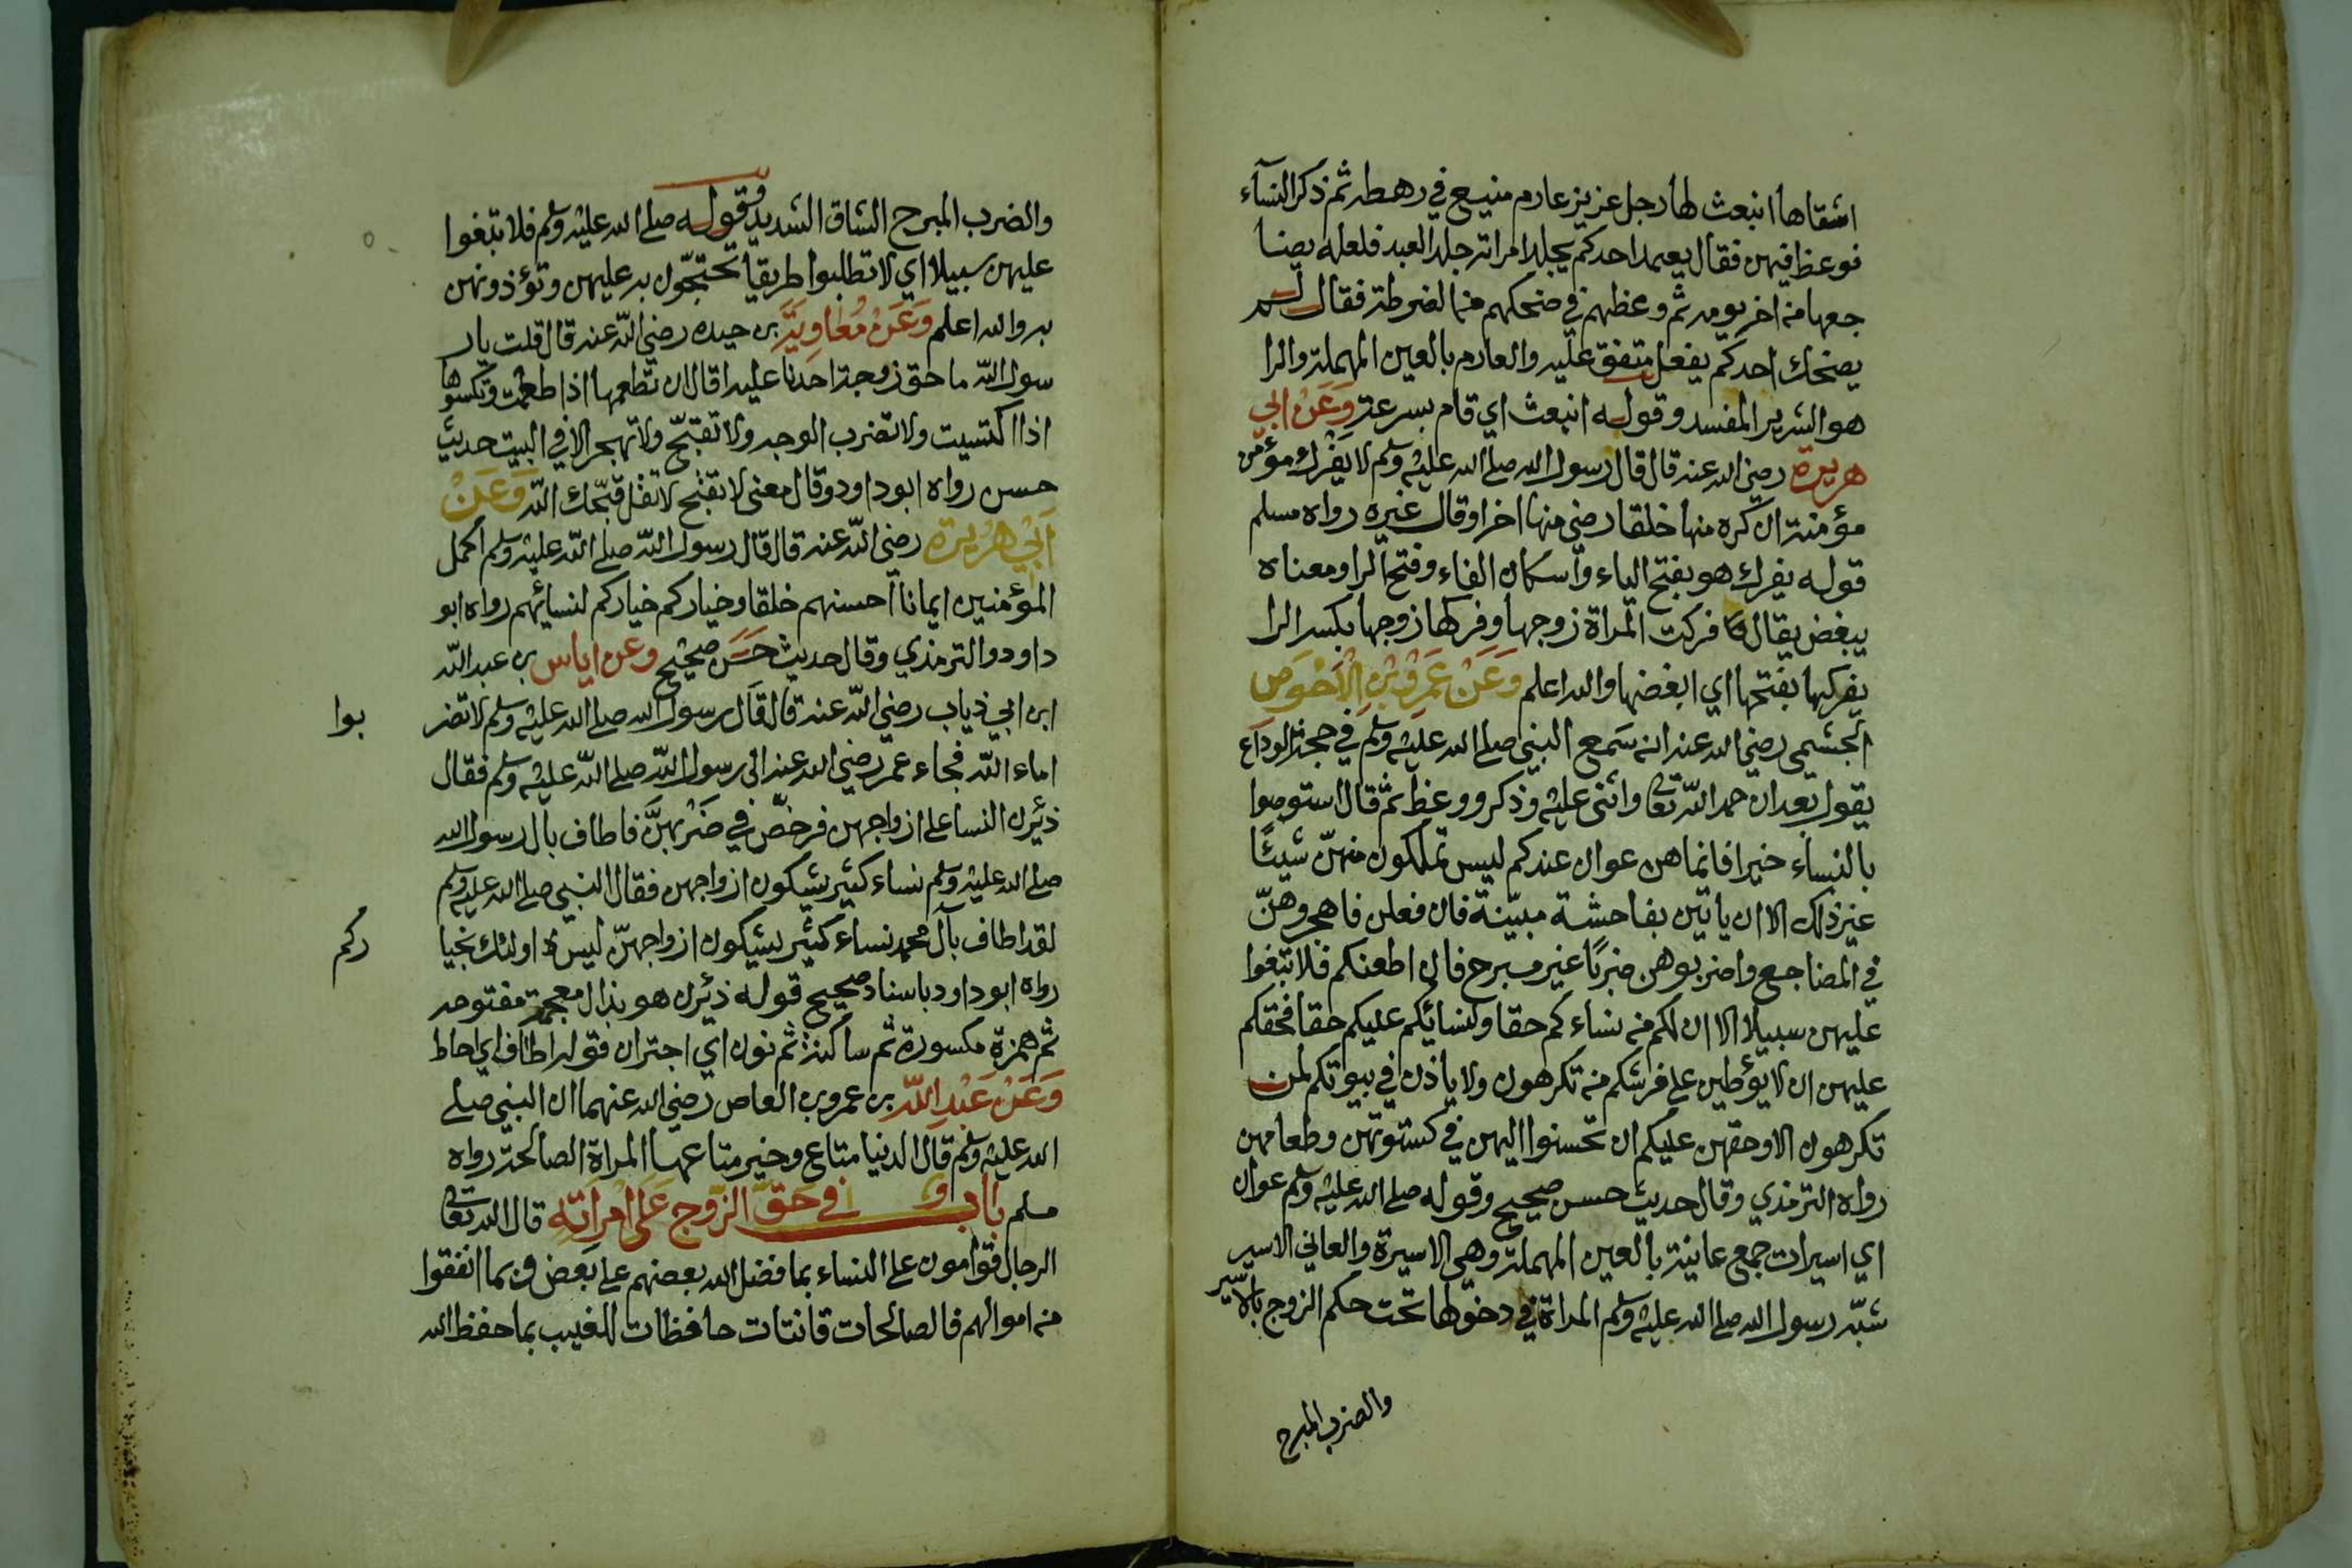 اشقاها انبعث لها رجل عزيز عارم منيع في رهطه ثم ذكر النسآء
فوعظ فيهن فقال يعمد احدكم يجلد امراته جلد العبد فلعله يضا
جعها من اخر يومه ثم وعظهم في ضحكهم من الضرطة فقال لم
يضحك احدكم يفعل متفق عليه والعارم بالعين المهملة والرا
هو الشرير المفسد وقوله انبعث اي قام بسرعة وَعَنْ ابي
هريرة رضي الله عنه قال قال رسول الله صلى الله عليه وسلم لا يَفْرك مؤمن
مؤمنة ان كره منها خلقا رضي منها اخر او قال غيره رواه مسلم
قوله يفرك هو بفتح الياء واسكان الفاء وفتح الرا ومعناه
يبغض يقال فركت المراة زوجها وفركها زوجها بكسر الرا
يفركها بفتحها اي ابغضها والله اعلم وَعَنْ عَمْرو بْنِ الْاَحْوَصِ
الجشمى رضي الله عنه انه سَمع النبي صلى الله عليه وسلم في حجة الوداع
يقول بعد ان حمد الله تعالى واثنى عليه وذكر ووعظ ثم قال استوصوا
بالنساء خيرا فانما هن عوان عندكم ليس تملكون منهنّ شيئًا
غير ذلك الا ان ياتين بفاحشة مبيّنة فان فعلن فاهجروهنّ
في المضاجع واضربوهن ضربًا غير مبرح فان اطعنكم فلا تبغوا
عليهن سبيلا الا ان لكم من نساءكم حقا ولنسائكم عليكم حقا فحقكم
عليهن ان لا يؤطين على فرشكم من تكرهون ولا ياذن في بيوتكم لمن
تكرهون الا وحقهن عليكم ان تحسنوا اليهن في كسوتهن وطعامهن
رواه الترمذي وقال حديث حسن صحيح وقوله صلى الله عليه وسلم عوان
اي اسيرات جمع عانية بالعين المهملة وهي الاسيرة والعاني الاسير
شبّه رسول الله صلى الله عليه وسلم المراة في دخولها تحت حكم الزوج بالاسير
والضرب المبرح
والضرب المبرح الشاق الشديد وقوله صلى الله عليه وسلم فلا تبغوا
عليهن سبيلا اي لا تطلبوا طريقا تحتجّون به عليهن وتؤذونهن
به والله اعلم وَعَنْ مُعَاوِيَةَ بن حيده رضي الله عنه قال قلت يار
سول الله ما حق زوجة احدنا عليه قال ان تطعمها اذا طعمت وتكسوها
اذا اكتسيت ولا تضرب الوجه ولا تقبّح ولا تهجر الا في البيت حديث
حسن رواه ابو داود وقال معنى لا تقبح لا تقل قبّحك الله وَعَنْ
اَبي هُرَيرة رضي الله عنه قال قال رسول الله صلى الله عليه وسلم اكمل
المؤمنين ايمانا احسنهم خلقا وخياركم خياركم لنسائهم رواه ابو
داود والترمذي وقال حديث حَسَن صحيح وعن اياس بن عبد الله
ابن ابي ذياب رضي الله عنه قال قال رسول الله صلى الله عليه وسلم لا تضر
بوا
اماء الله فجاء عمر رضي الله عنه الى رسول الله صلى الله عليه وسلم فقال
ذئرن النسا على ازواجهن فرخّص في ضَرْبهنَّ فاطاف بال رسول الله
صلى الله عليه وسلم نساء كثير يشكون ازواجهن فقال النبي صلى الله عليه وسلم
لقد اطاف بآل محمد نساء كثير يشكون ازواجهنّ ليس اولئك بخيا
ركم
رواه ابو داود باسناد صحيح قوله ذئرن هو بذال معجمة مفتوحه
ثم همزة مكسورة ثم ساكنة ثم نون اي اجتران قوله اطاف اي احاط
وَعَنْ عَبْدِ اللهِ بن عمرو بن العاص رضي الله عنهما ان النبي صلى
الله عليه وسلم قال الدنيا متاع وخير متاعها المراة الصالحة رواه
مسلم باب في حَقّ الزّوج عَلى امْرَاَتِه قال الله تعالى
الرجال قوامون على النساء بما فضل الله بعضهم على بعض وبما انفقوا
من اموالهم فالصالحات قانتات حافظات للغيب بما حفظ الله